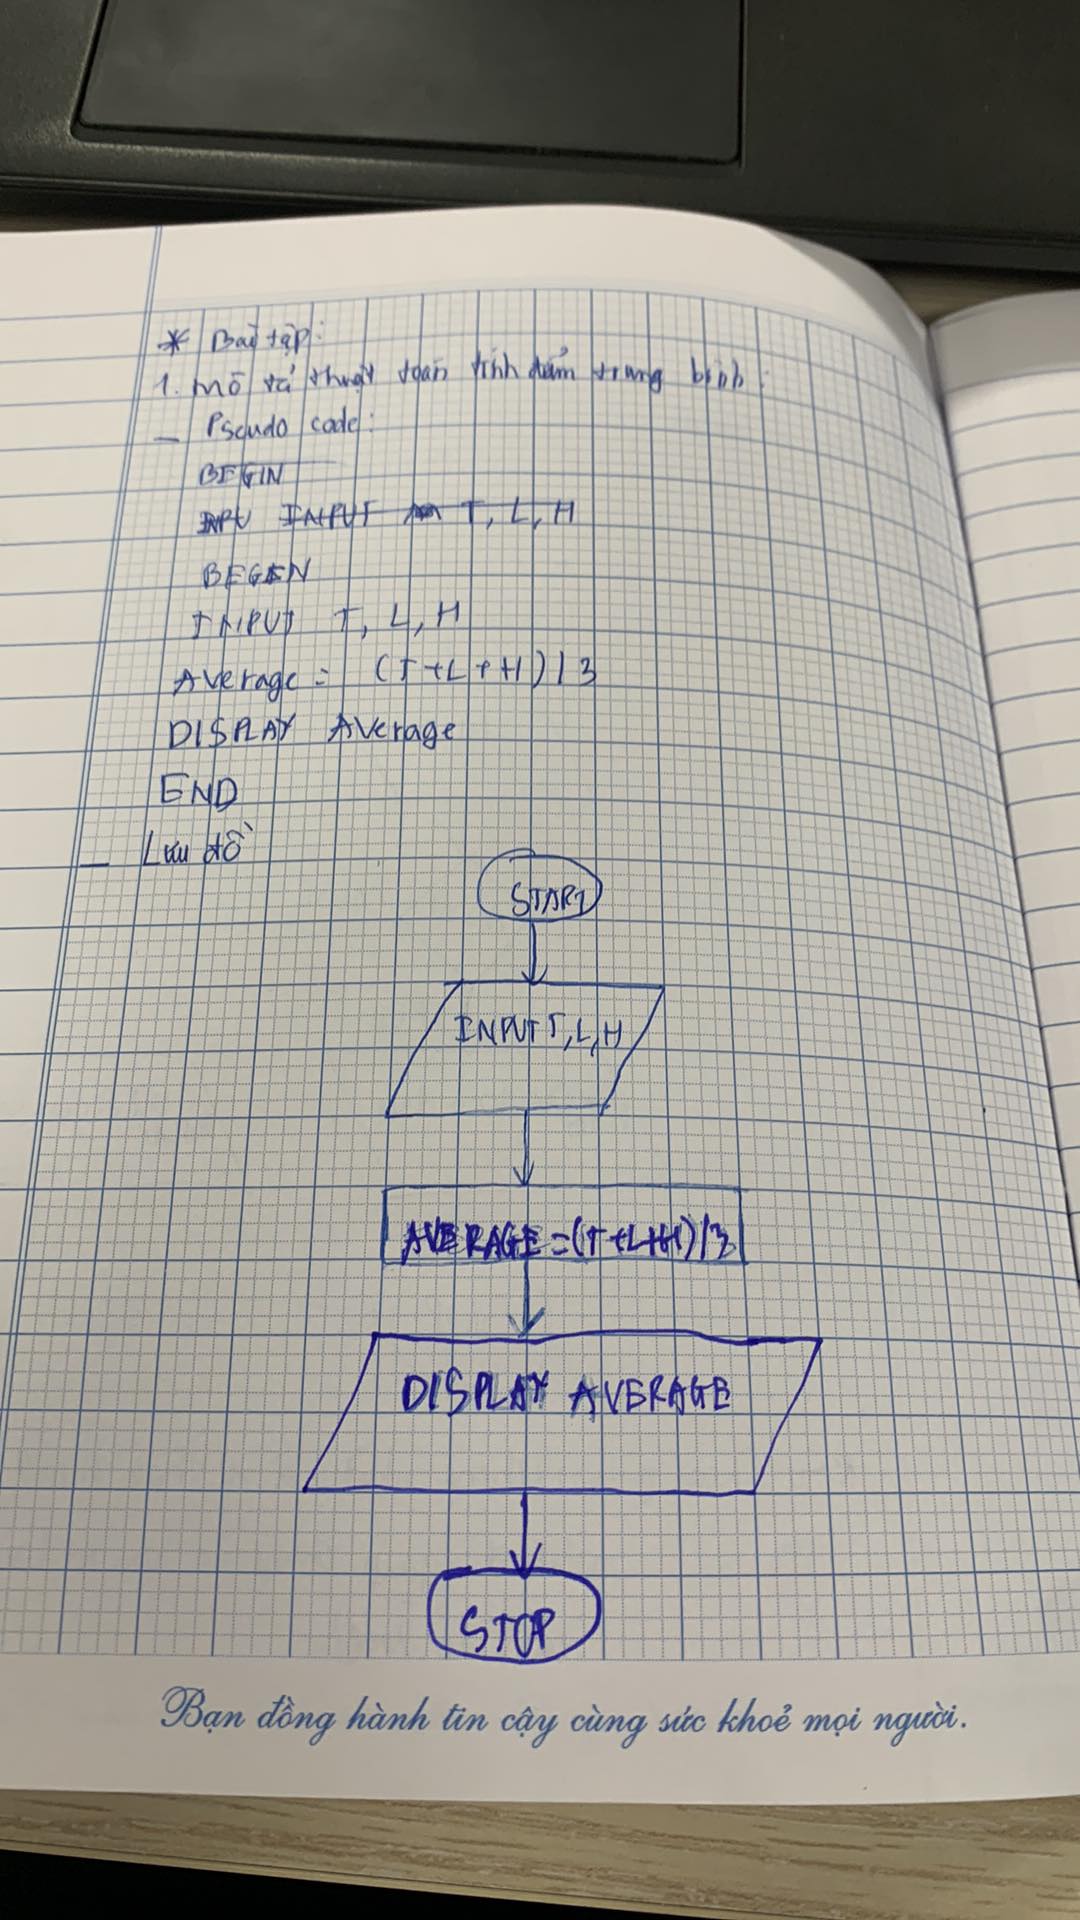 * Bài tập:
1. Mô tả thuật toán tính điểm trung bình:
- Pseudo code:
BEGIN
INPU INPUT T, L, H
BEGIN
INPUT T, L, H
Average = (T+L+H)/3
DISPLAY Average
END
- Lưu đồ
START
INPUT T, L, H
AVERAGE = (T+L+H)/3
DISPLAY AVERAGE
STOP
Bạn đồng hành tin cậy cùng sức khoẻ mọi người.